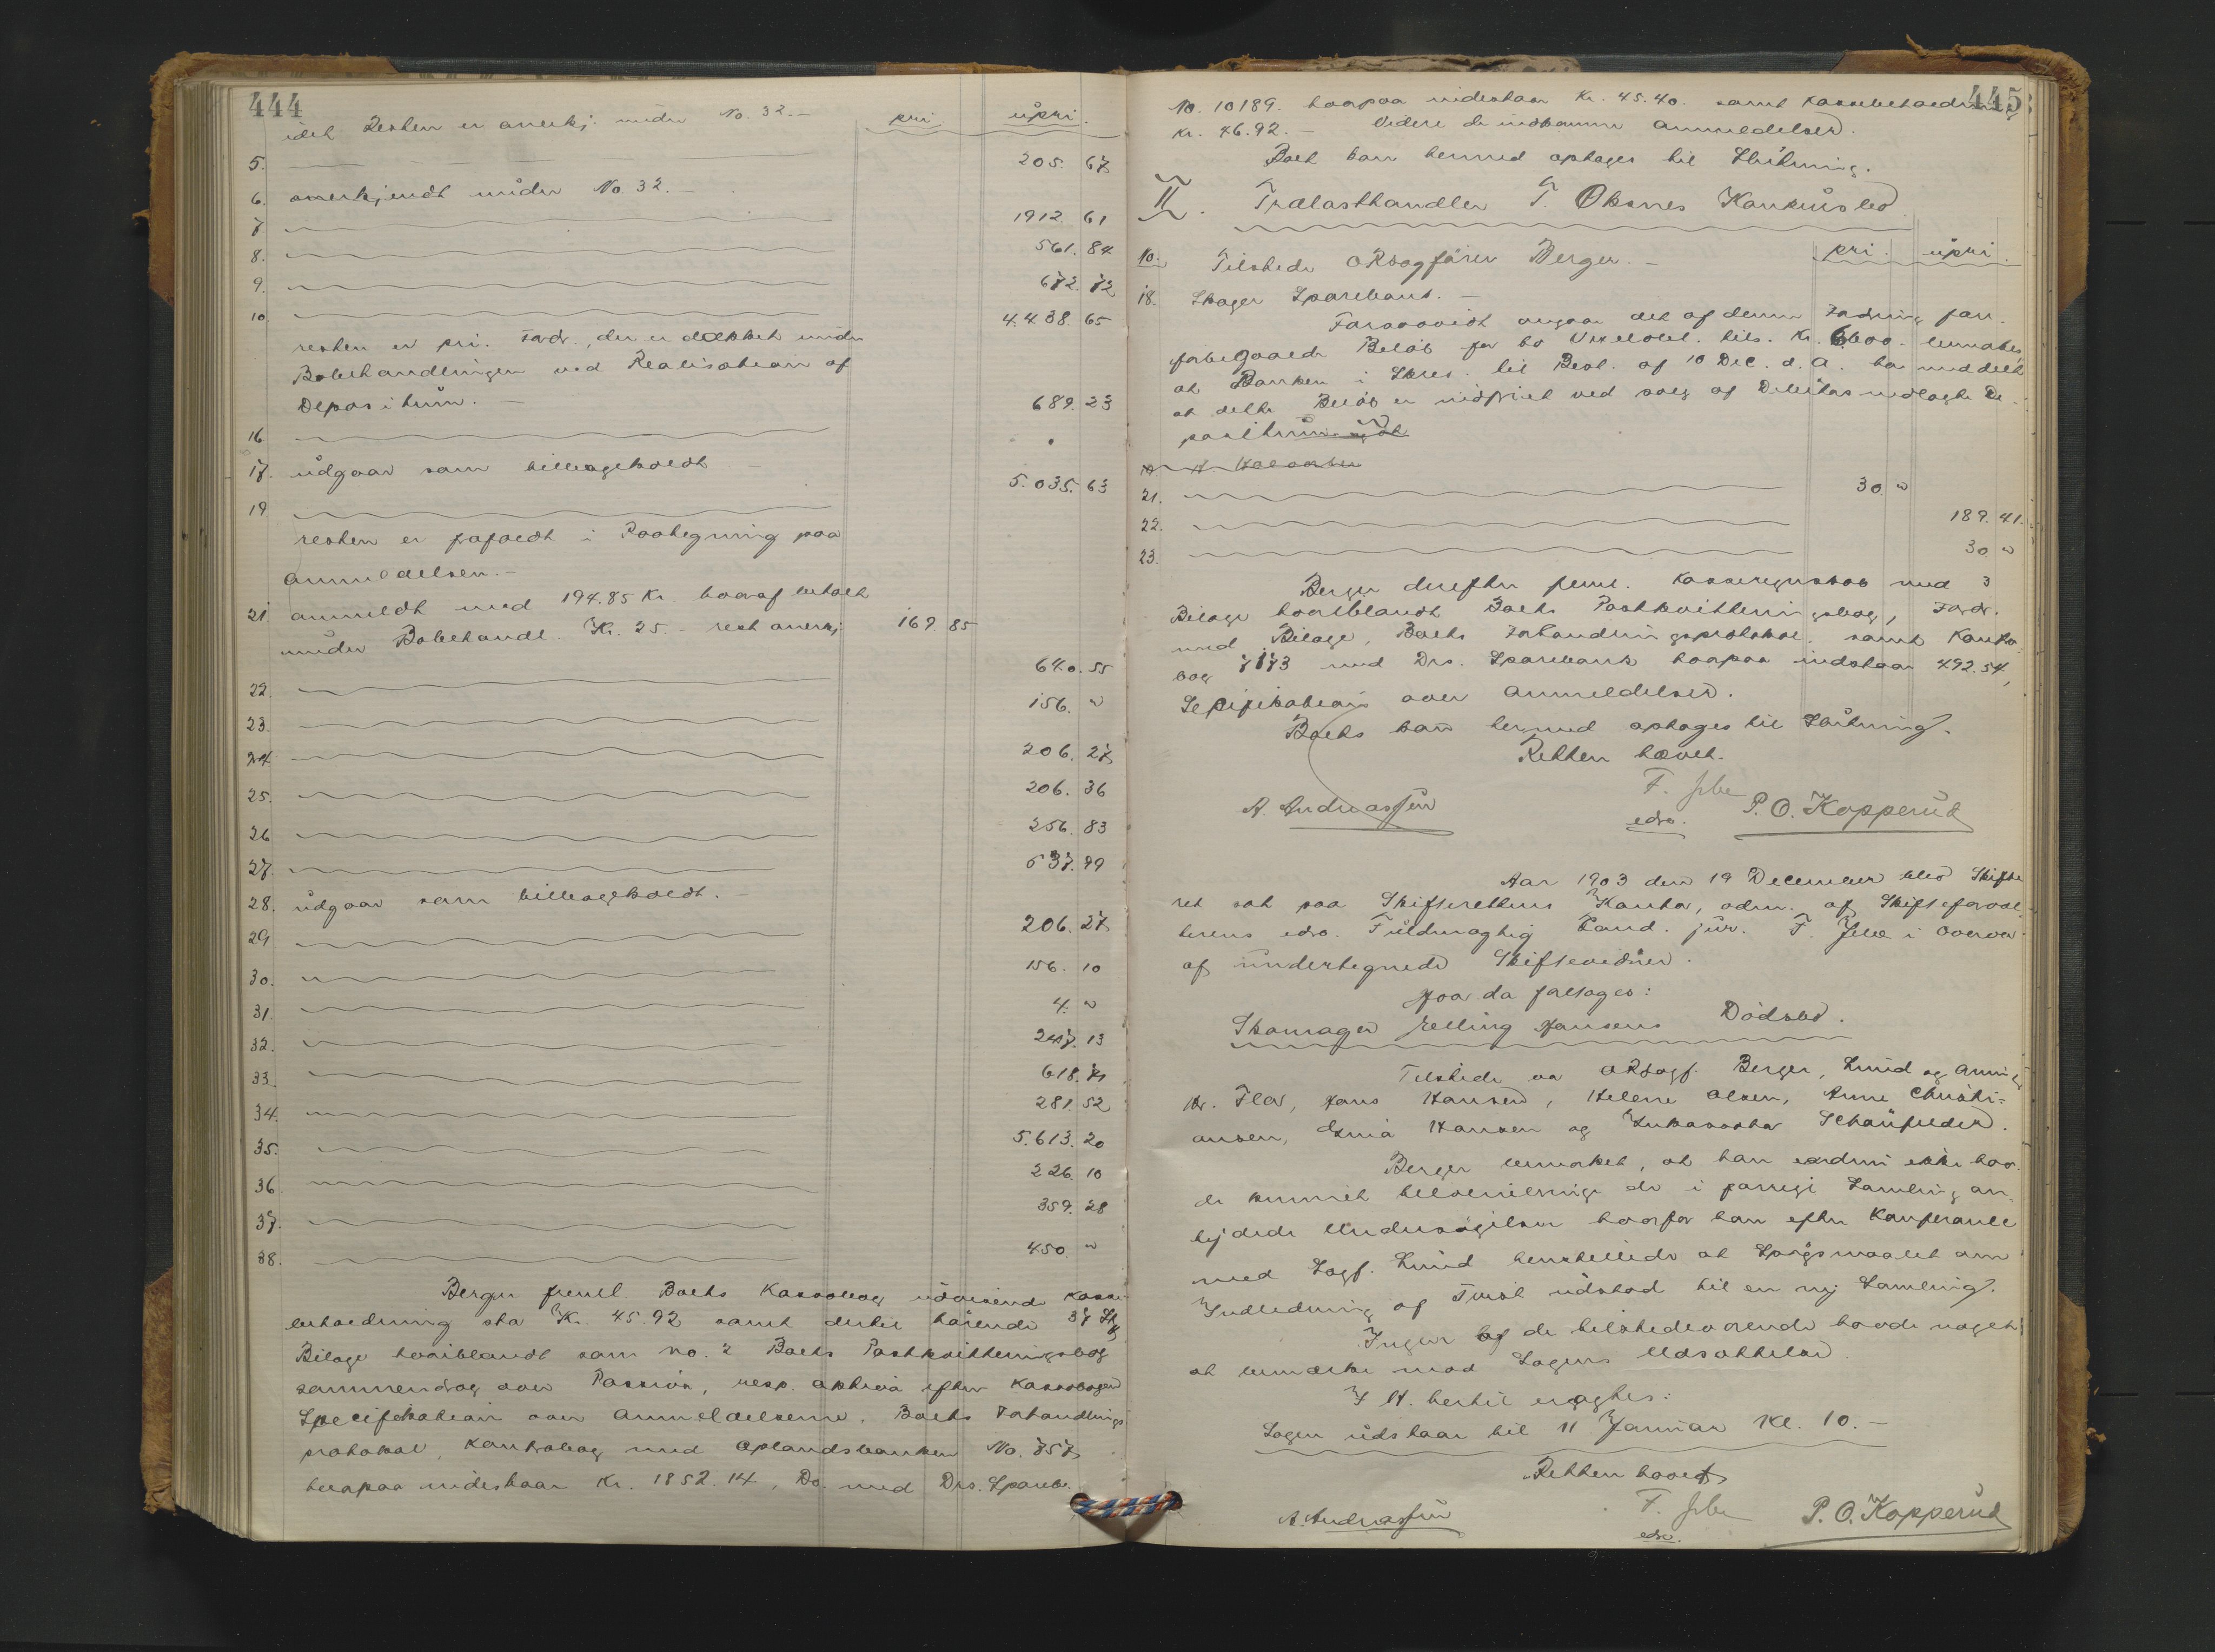 444
idet Resten er anerkj. under No. 32.— pri. upri.
5. 205. 67
6. anerkjendt under No 32.—
7. 1912. 61
8. 561. 84
9. 672. 72
10. 4.438. 65
resten er pri. Fordr., der er dækket under
Bobehandlingen ved Realisation af
Depositum.—
16. 689. 23
17. udgaar som tilbagekaldt
19. 5.035. 63
resten er frafaldt i Paategning paa
Anmeldelsen.—
21. anmeldt med 194.85 Kr. hvoraf betalt
under Bobehandl. Kr. 25.— rest anerkj. 169. 85
22. 640. 55
23. 156. "
24. 206. 27
25. 206. 36
26. 256. 83
27. 637. 99
28. udgaar som tilbagekaldt.—
29. 206. 27
30. 156. 10
31. 4. "
32. 247. 13
33. 618. 71
34. 281. 52
35. 5.613. 20
36. 226. 10
37. 359. 28
38. 450. "
Berger freml. Boets Kassabog udvisende Kasse-
beholdning sta Kr. 45.92 samt dertil hørende 37 Stk
Bilage hvoriblandt som No. 2 Boets Postkvitteringsbog
sammendrag over Passiva, resp. aktiva efter Kassabogen
Specifikation over Anmeldelserne, Boets Forhandlings
protokol, Kontrabog med Oplandsbanken No. 757
hvorpaa indestaar Kr. 1852.14, Do. med Drs. Spareb.
445
No. 10189. hvorpaa indestaar Kr. 45.40. samt Kassebeholdn.
Kr. 46.92.— Videre de indkomne Anmeldelser.
Boet kan hermed optages til Slutning.
II. Trælasthandler T. Oksnes Konkursbo
10. Tilstede ORsagfører Berger.— pri. upri.
18. Skager Sparebank.—
Forsaavidt angaar det af denne Fordring før
forbigaaede Beløb for to Vexelobl. tils. Kr. 6600.— bemærkes,
at Banken i Skriv. til Best. af 10 Dec. d. A. har meddelt
at dette Beløb er indfriet ved salg af Debitors nedlagte De-
positum
21. 30 "
22. 189. 41.
23. 30 "
Berger derefter freml. Kasseregnskab med 3
Bilage hvoriblandt Boets Postkvitteringsbog, Fordr.
med Bilage, Boets Forhandlingsprotokol samt Kontra
bog 7173 med Drs. Sparebank hvorpaa indstaar 492.54,
Specifikation over Anmeldelser.
Boets kan hermed optages til Slutning.
Retten hævet.
A. Andreassen F. edsv. P. O. Kopperud
Aar 1903 den 19 December blev Skifte
ret sat paa Skifterettens Kontor, adm. af Skifteforval-
terens edsv. Fuldmægtig Cand. jur. F. i Overvær
af undertegnede Skiftevidner.
Hvor da foretoges:
Skomager Jelling Hansens Dødsbo.
Tilstede var ORsagf. Berger, Lund og
Kr. Flor, Hans Hansen, Helene Olsen, Anne Christi-
ansen, Hansen og
Berger bemærket, at han endnu ikke hav-
de kunnet tilveiebringe de i forrige Samling an-
tydede Undersøgelser hvorfor han efter Konferance
med Sagf. Lund henstillede at Spørgsmaalet om
Indledning af Tvist udstod til en ny Samling.
Ingen af de tilstedeværende havde noget
at bemærke mod Sagens Udsættelse.
I H. hertil eragtes:
Sagen udstaar til 11 Januar Kl. 10.—
Retten hævet
A. Andreassen F. edsv. P. O. Kopperud